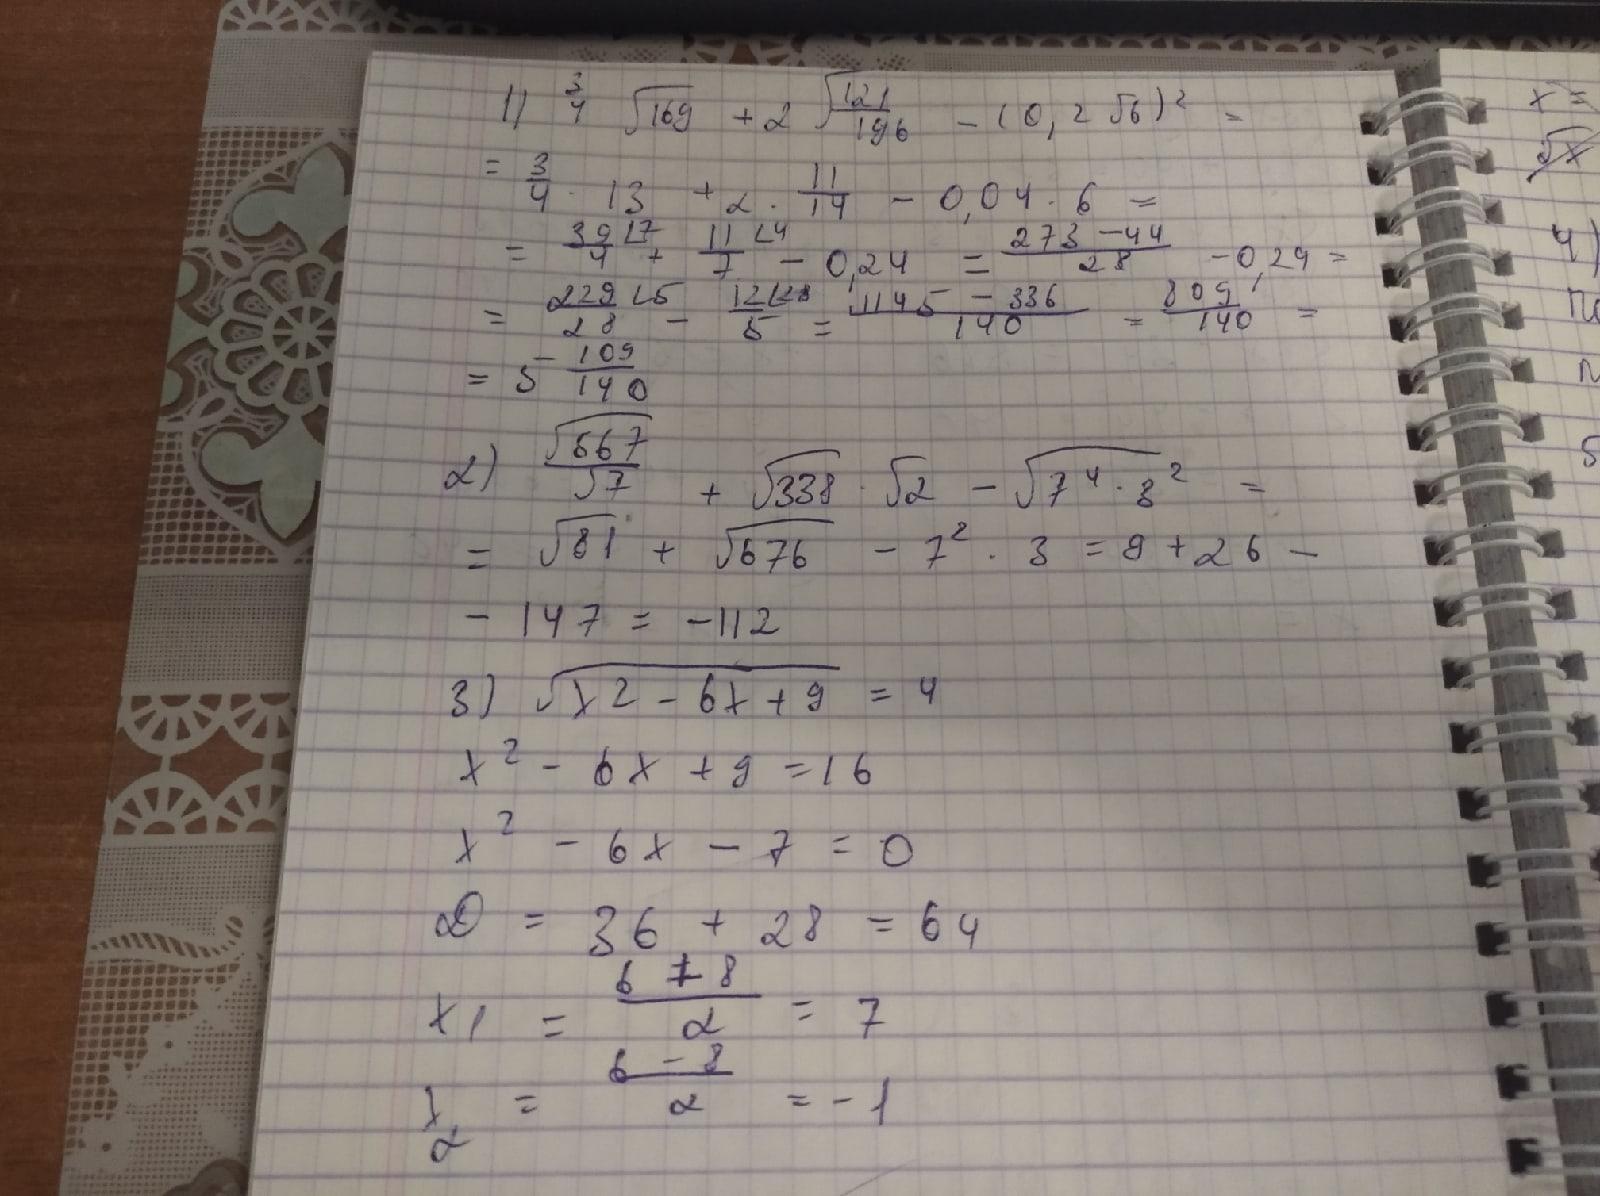 1) 3/4 √169 + 2 √(121/196) - (0,2√6)² =
= 3/4 · 13 + 2 · 11/14 - 0,04 · 6 =
= 39∠7/4 + 11∠4/7 - 0,24 = (273 - 44)/28 - 0,24 =
= 229∠5/28 - 12∠28/5 = (1145 - 336)/140 = 809/140 =
= 5 - 109/140
2) √567/√7 + √338 · √2 - √(7⁴ · 3²) =
= √81 + √676 - 7² · 3 = 9 + 26 -
- 147 = -112
3) √(x2 - 6x + 9) = 4
x² - 6x + 9 = 16
x² - 6x - 7 = 0
D = 36 + 28 = 64
x1 = (6 + 8)/2 = 7
x2 = (6 - 8)/2 = -1
x =
√x
4)
5